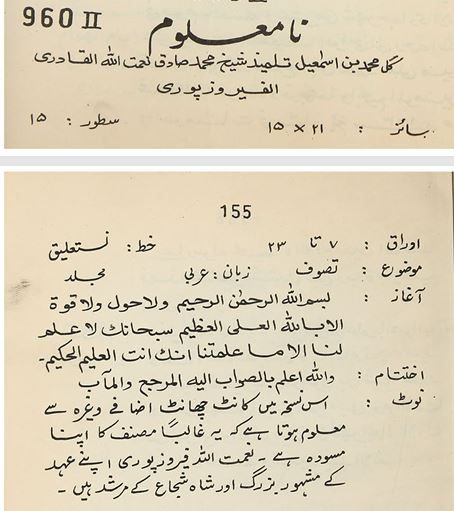 960 II
نامعلوم
گل محمد بن اسمٰعیل تلمیذ شیخ محمد صادق نعمت اللہ القادری
الفیروزپوری
سائز : ۲۱ × ۱۵ سطور : ۱۵
155
اوراق : ۷ تا ۲۳ خط : نستعلیق
موضوع : تصوف زبان : عربی مجلد
آغاز : بسم اللہ الرحمٰن الرحیم ولا حول ولا قوۃ
الا باللہ العلی العظیم سبحانک لا علم
لنا الا ما علمتنا انک انت العلیم الحکیم۔
اختتام : واللہ اعلم بالصواب الیہ المرجع والمآب
نوٹ : اس نسخہ میں کانٹ چھانٹ اضافے وغیرہ سے
معلوم ہوتا ہے کہ یہ غالباً مصنف کا اپنا
مسودہ ہے ۔ نعمت اللہ فیروزپوری اپنے عہد
کے مشہور بزرگ اور شاہ شجاع کے مرشد ہیں ۔